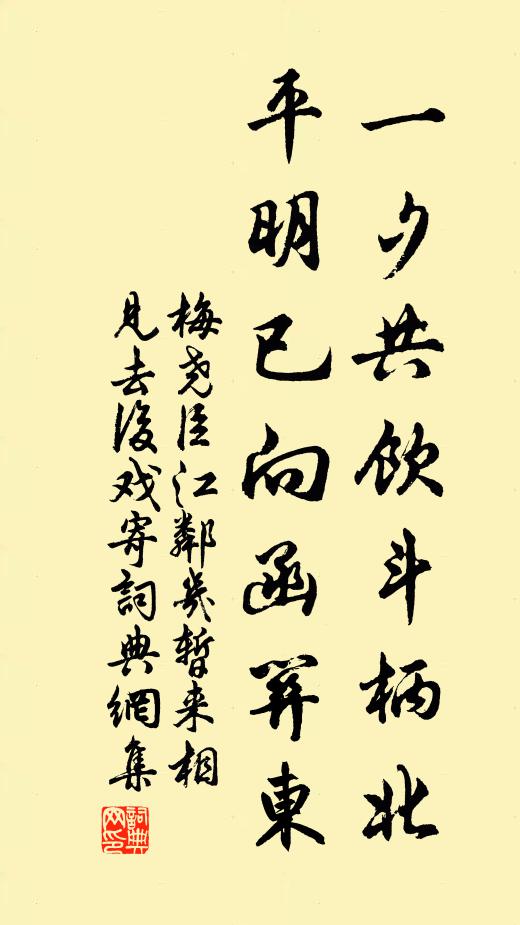 一夕共飲斗柄北
平明已向函關東
梅尧臣江鄰幾暫来相
見去後戏寄詞典網集
詞典網印